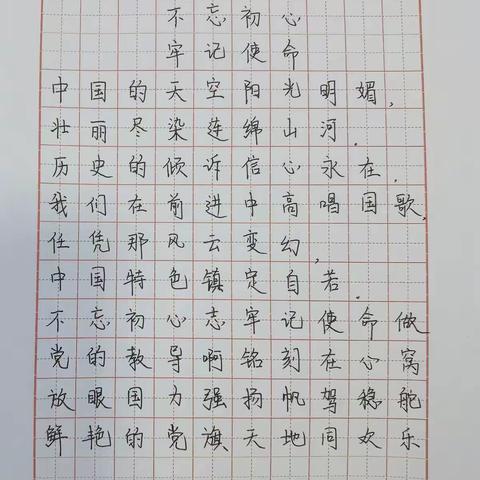 不忘初心
牢记使命
中国的天空阳光明媚,
壮丽尽染莲绵山河.
历史的倾诉信心永在.
我们在前进中高唱国歌,
任凭那风云变幻,
中国特色镇定自若.
不忘初心志牢记使命做
党的教导啊铭刻在心窝
放眼国力强扬帆驾稳舵
鲜艳的党旗天地同欢乐